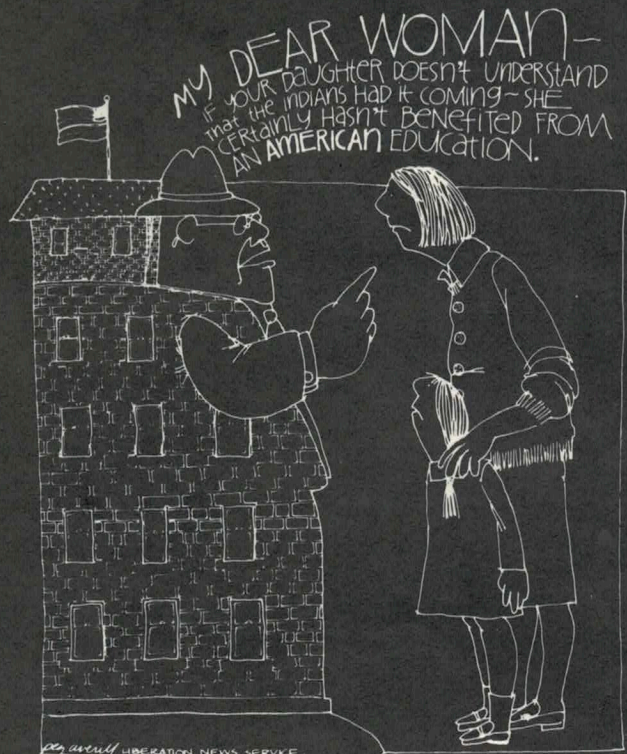 MY DEAR WOMAN—
IF YOUR DAUGHTER DOESN'T UNDERSTAND
that the INDIANS HAD IT COMING~SHE
CERTAINLY HASN'T BENEFITED FROM
AN AMERICAN EDUCATION.
peg averill LIBERATION NEWS SERVICE